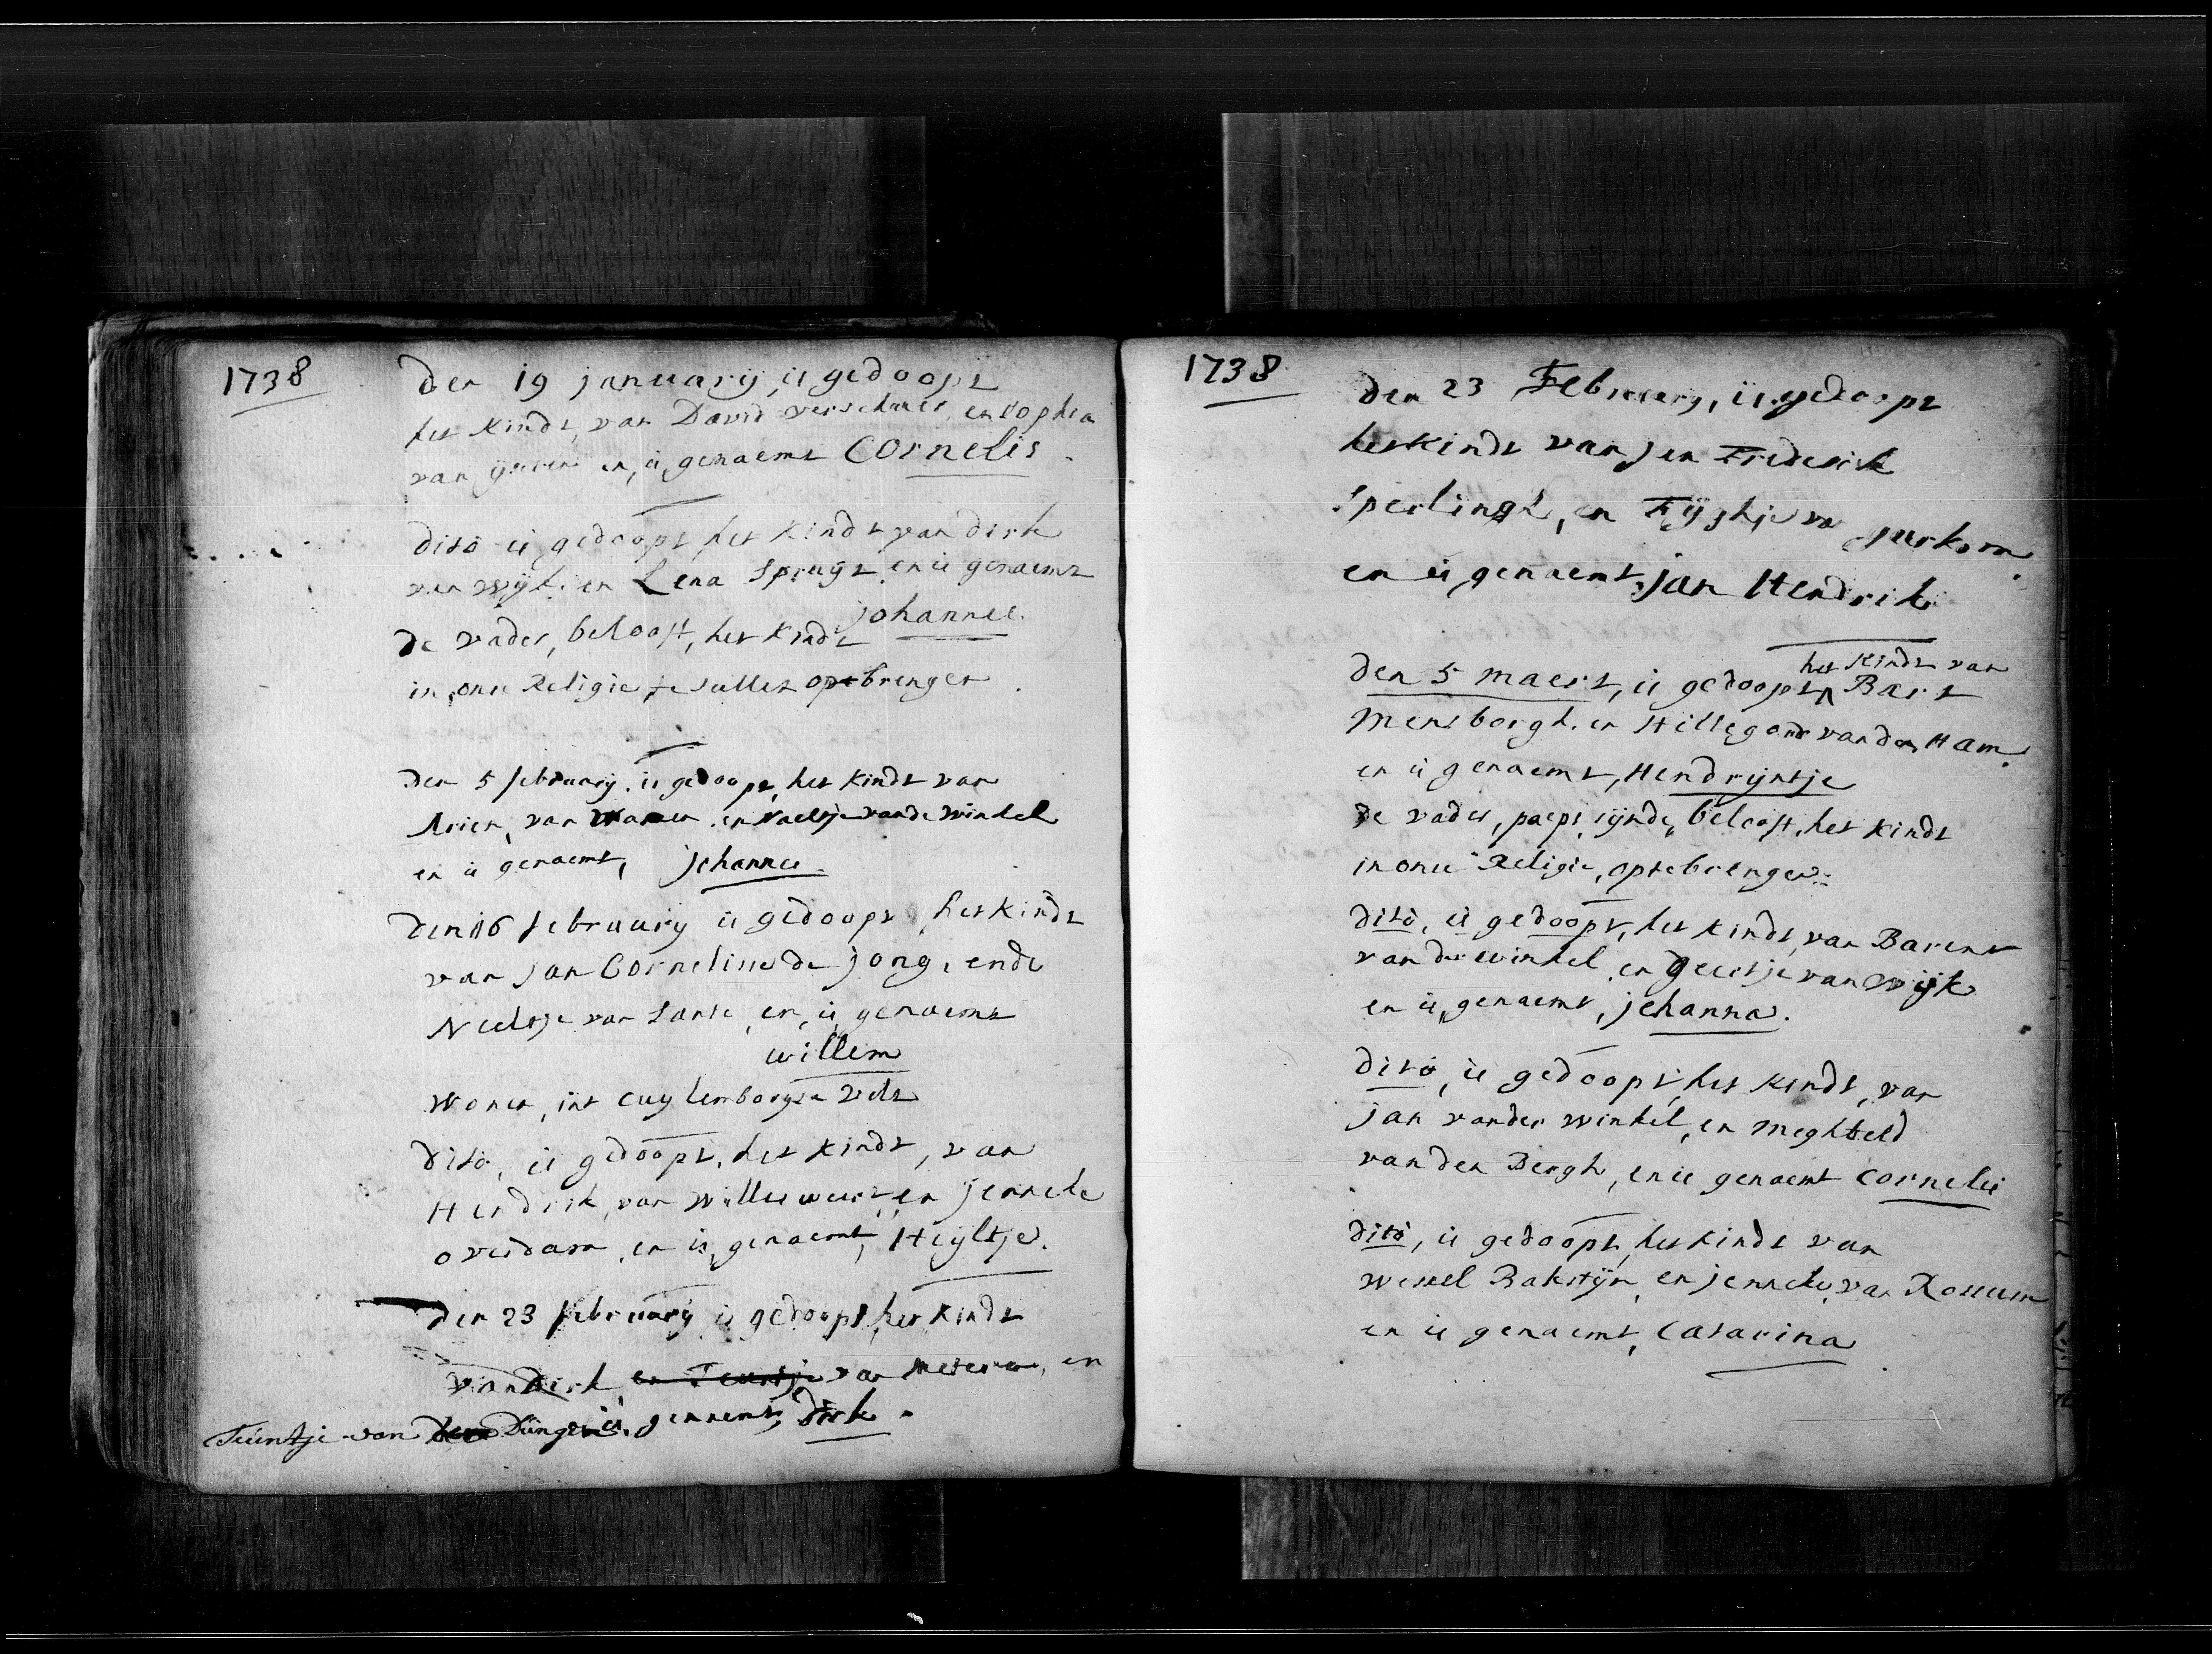 1738
Den 19 january, is gedoopt
het Kindt, van David verschuer, en sophia
van en, is, genaemt Cornelis.
dito is gedoopt het Kindt van dirk
van wijk. en Lena Spruijt en is genaemt
johannes.
De vader, belooft, het Kindt
in onse Religie te sullen opbrengen
Den 5 february. is gedoopt, het Kindt van
Arien, van en Neeltje vande Winkel
en is genaemt, johannes.
Den 16 february is gedoopt het Kindt
van Jan Cornelisse de jong, ende
Neeltje van Sante, en, is genaemt
willem
Wonen, int Cuylemborgse velt
Dito, is gedoopt, het Kindt, van
Hendrik, van Willeswaert, en jenneke
overdam, en is, genaemt, Heyltje.
Den 23 february is gedoopt het Kindt
van Dirk en Teuntje van Meteren, en
Teuntje van den Dungen is. genaemt, dirk.
1738
Den 23 February, is, gedoopt
het Kindt van Jan Frederik
Sperlingh, en Fijghje van gurkom
en is genaemt, jan Hendrik
het Kindt van
Den 5 maert, is gedoopt Bart
Mensborgh. en Hillegond vanden Ham.
en is genaemt, Hendrijntje
De vader, paeps sijnde, belooft, het Kindt
in onse Religie, opte brengen.
dito, is gedoopt, het Kindt, van Barent
van der winkel, en Geertje van Wijk
en is, genaemt, johanna.
dito, is gedoopt, het Kindt, van
jan vander Winkel, en Meghteld
vanden Bergh, en is genaemt Cornelis
dito, is gedoopt, het Kindt van
Wessel Bakstijn, en jenneke, van Rossum
en is genaemt, Catarina